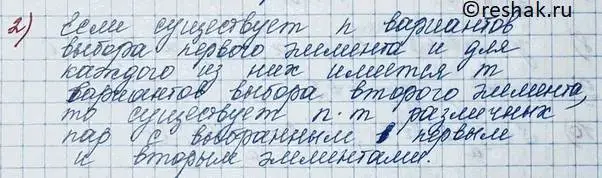 reshak.ru
2) Если существует n вариантов
выбора первого элемента и для
каждого из них имеется m
вариантов выбора второго элемента,
то существует n·m различных
пар с выбранным первым
и вторым элементами.